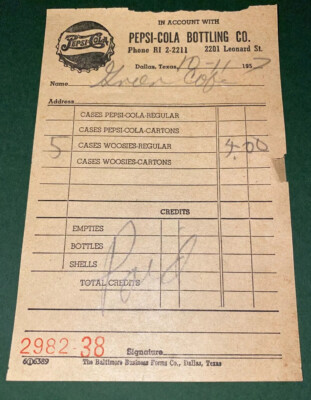 IN ACCOUNT WITH
PEPSI-COLA
PEPSI-COLA BOTTLING CO.
Phone RI 2-2211 2201 Leonard St.
Dallas, Texas, 10-11 1957
Name Green Cafe
Address
CASES PEPSI-COLA-REGULAR
CASES PEPSI-COLA-CARTONS
5 CASES WOOSIES-REGULAR 4.00
CASES WOOSIES-CARTONS
CREDITS
EMPTIES
BOTTLES
SHELLS
TOTAL CREDITS
Paid
2982-38 Signature
The Baltimore Business Forms Co., Dallas, Texas